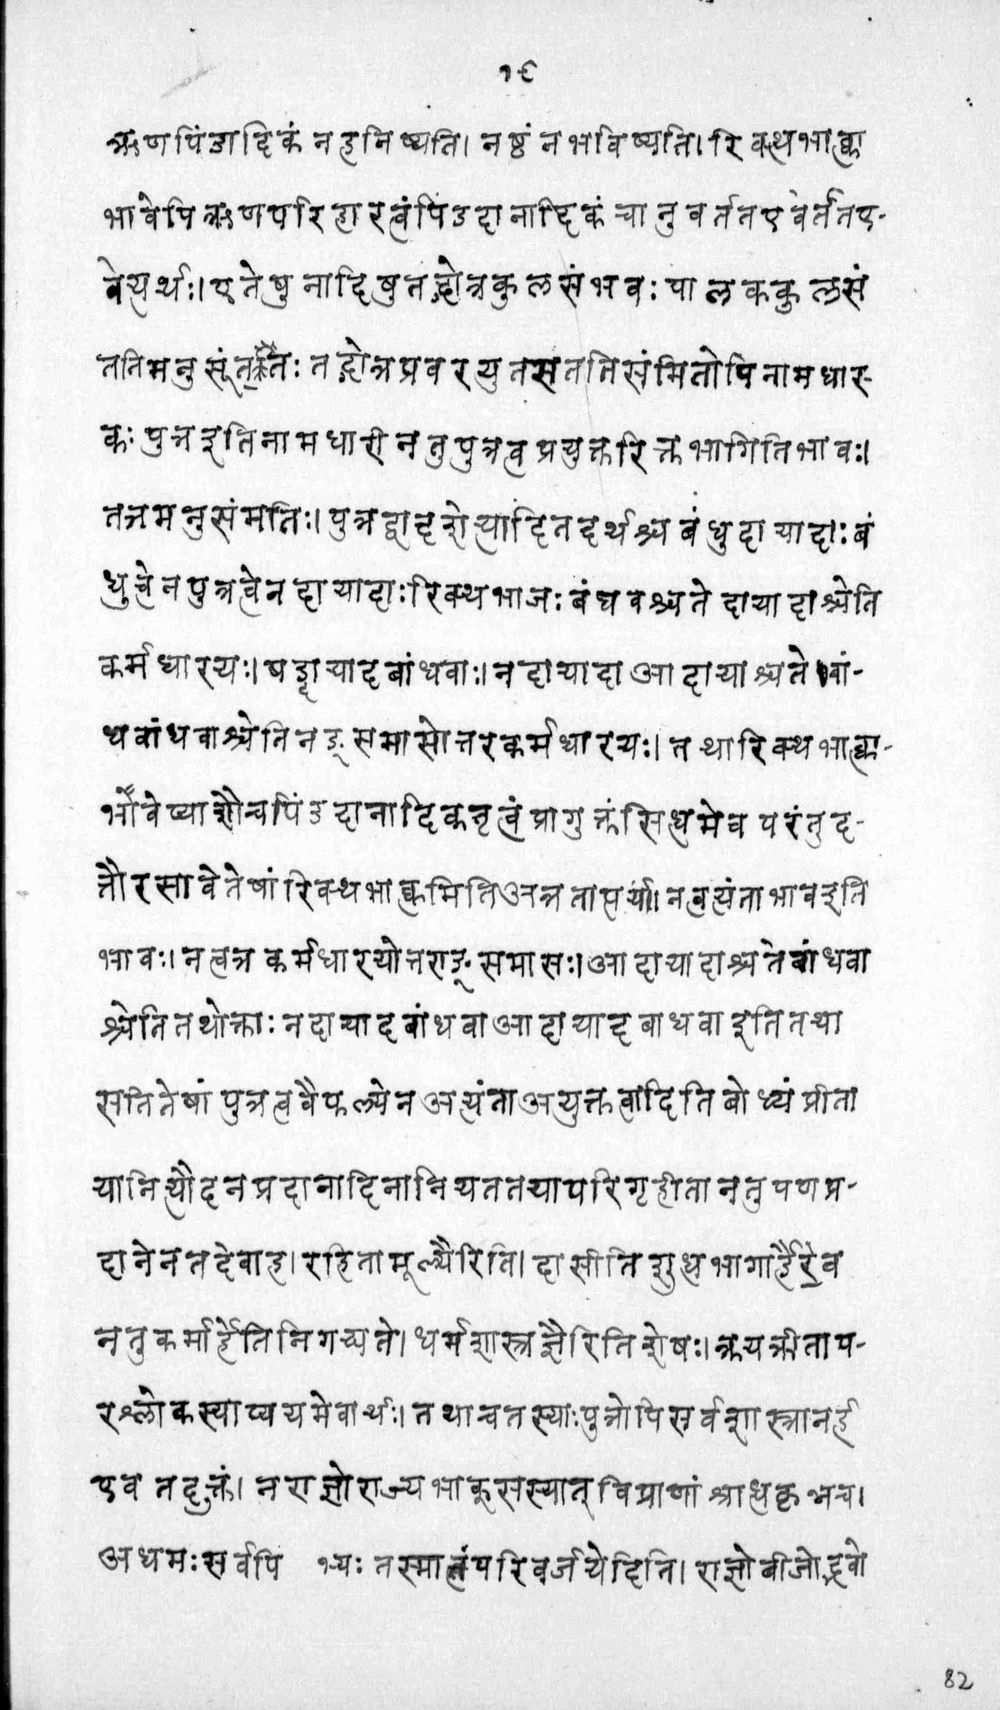 १९
ऋणपिंडादिकं न हनिष्यति। नष्ठं न भविष्यति। रिक्थभाक्त्वा
भावेपि ऋणपरिहारत्वंपिंडदानादिकं चानुवर्तत एवेर्तत ए-
वेत्यर्थः। एतेषु नादिषु तद्गोत्रकुलसंभवः पालककुलसं
ततिमनु तद्गोत्रप्रवरयुतसततिसंमितोपि नामधार-
कः पुत्र इति नामधारी न तु पुत्रत्वप्रयुक्तरिक्तभागितिभावः।
तत्र मनुसंमतिः। पुत्रद्वादशेत्यादि तदर्थश्च बंधुदायादाः बं
धुत्वेन पुत्रत्वेन दायादाः रिक्थभाजः बंधवश्च ते दायादाश्चेति
कर्मधारयः। षड्दायादबांधवाः। न दायादा आदायाश्च ते बां-
धवांधवाश्चेति नङ् समासोत्तरकर्मधारयः। तथा रिक्थभाक्त्वा-
भावेप्याशौचपिंडदानादिकतृत्वं प्रागुक्तं सिधमेव परंतु द-
त्तौरसावेतेषां रिक्थभाक्त्वमिति अत्र तात्पर्यां। नत्वत्यंताभाव इति
भावः। नत्वत्र कर्मधारयोत्तराङ् समासः। आदायादाश्च ते बांधवा
श्चेति तथोक्ताः न दायादबांधवा आदायादबाधवा इति तथा
सति तेषां पुत्रत्ववैफल्येन अत्यंता अयुक्तत्वादिति बोध्यं प्रीता
यानित्यौदनप्रदानादिना नियततयापरिगृहीता न तु पणप्र-
दानेन तदेवाह। रहितामूल्यैरिति। दासीति शुधभागार्हैरेव
न तु कर्मार्हेति निगद्यते। धर्मशास्त्रज्ञैरिति शेषः। क्रयक्रीताप-
रश्लोकस्याप्ययमेवार्थः। तथान्वतस्याः पुत्रोपि सर्वशास्त्रानर्ह
एव तदुक्तं। न राज्ञो राज्यभाक् सस्यात् विप्राणां श्राधकृन्नच।
अधमः सर्वपि भ्यः तस्मात्तंपरिवर्जयेदिति। राज्ञो बीजोद्भवो
82